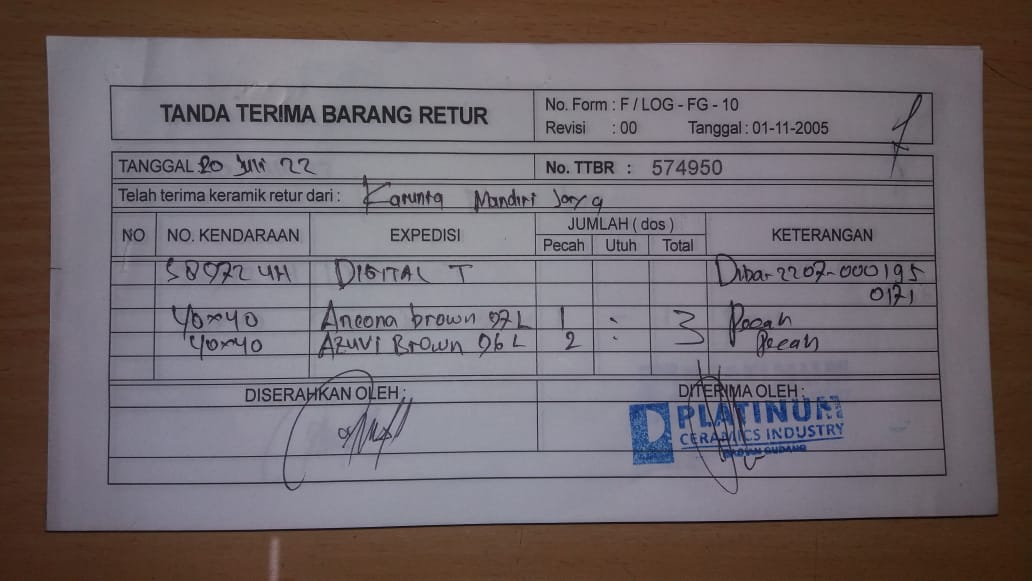 TANDA TERIMA BARANG RETUR
No. Form : F / LOG - FG - 10
Revisi : 00 Tanggal : 01-11-2005
TANGGAL 20 Juli 22
No. TTBR : 574950
Telah terima keramik retur dari : Karunia Mandiri Jaya
NO NO. KENDARAAN EXPEDISI JUMLAH ( dos ) KETERANGAN
Pecah Utuh Total
S 8972 UH DIGITAL T 2207-000195
0171
40x40 Ancona brown 07 L 1 - 3 Pecah
40x40 AZUVI BROWN 06 L 2 - Pecah
DISERAHKAN OLEH : DITERIMA OLEH :
PLATINUM
CERAMICS INDUSTRY
GUDANG